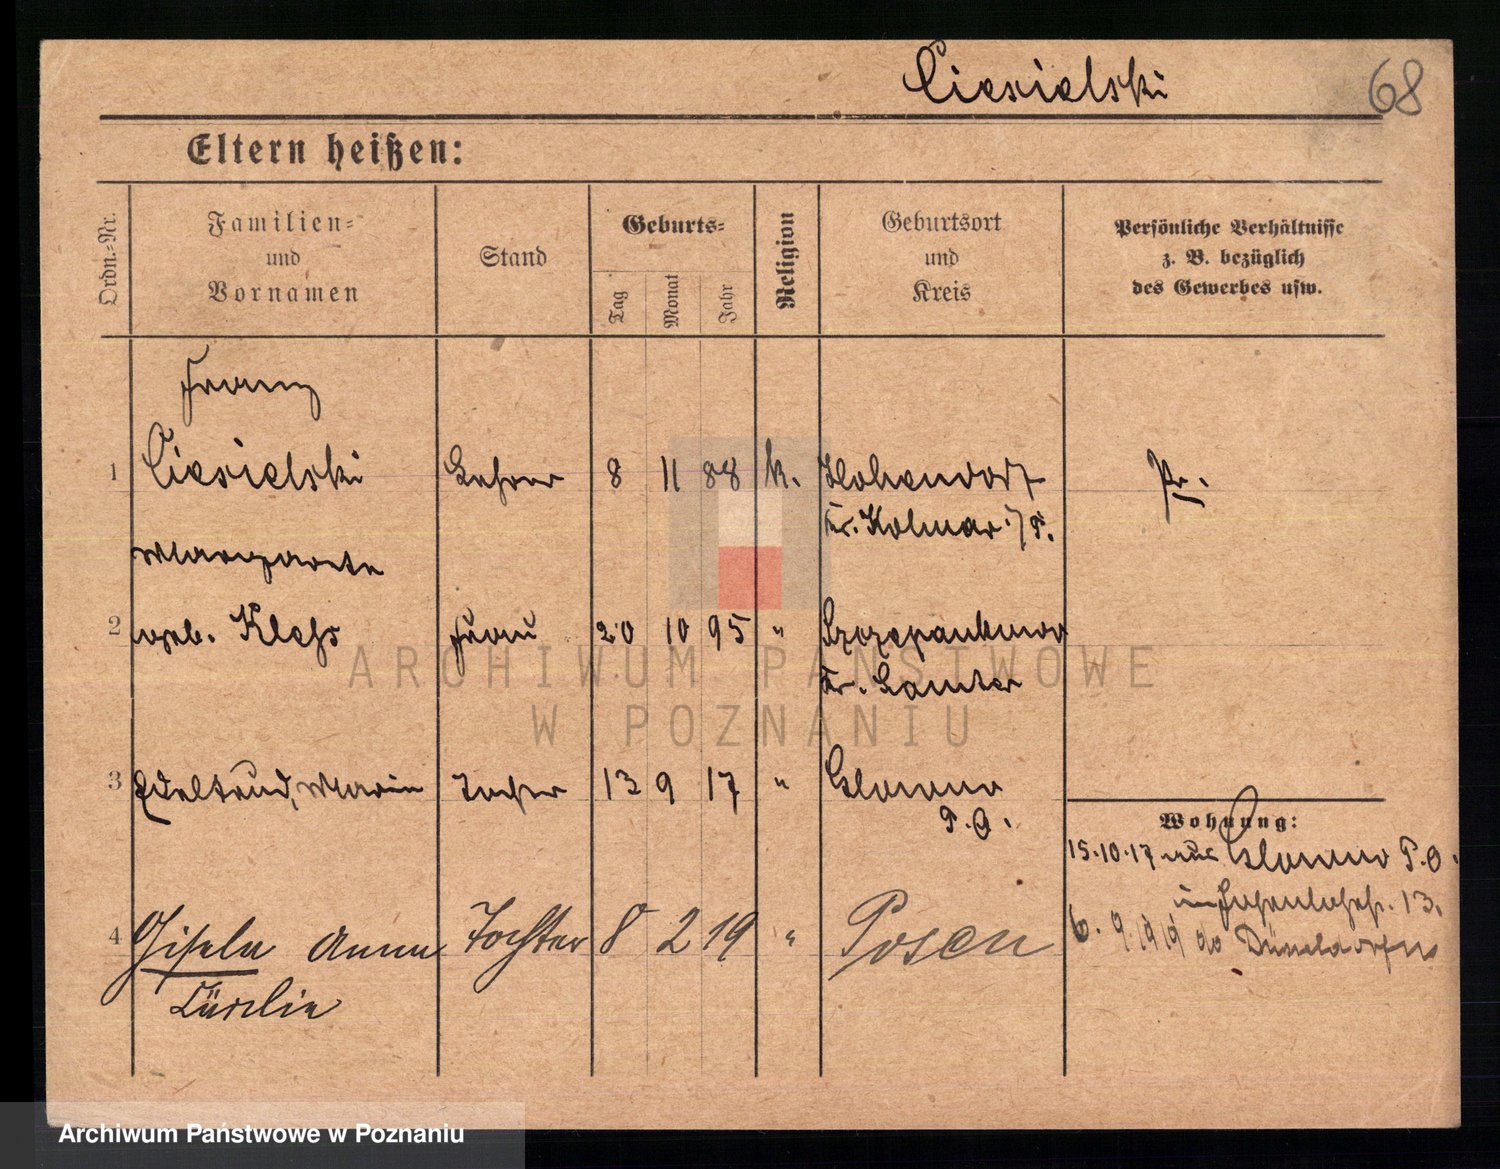 Ciesielski
68
Eltern heißen:
Ordn.-Nr.
Familien-
und
Vornamen
Stand
Geburts-
Tag
Monat
Jahr
Religion
Geburtsort
und
Kreis
Persönliche Verhältnisse
z. B. bezüglich
des Gewerbes usw.
Franz
1 Ciesielski Lehrer 8 11 88 k. Hohendorf Pr.
Kr. Kolmar i/P.
Margarete
2 geb. Frau 20 10 95 "
Kr. Samter
3 Edeltrud, Maria Tochter 13 9 17 " Glowno
P. O.
Wohnung:
15.10.17 aus Glowno P. O.
13.
4 Gisela Anna Tochter 8 2 19 " Posen
6. 9. 1919
ARCHIWUM PAŃSTWOWE
W POZNANIU
Archiwum Państwowe w Poznaniu